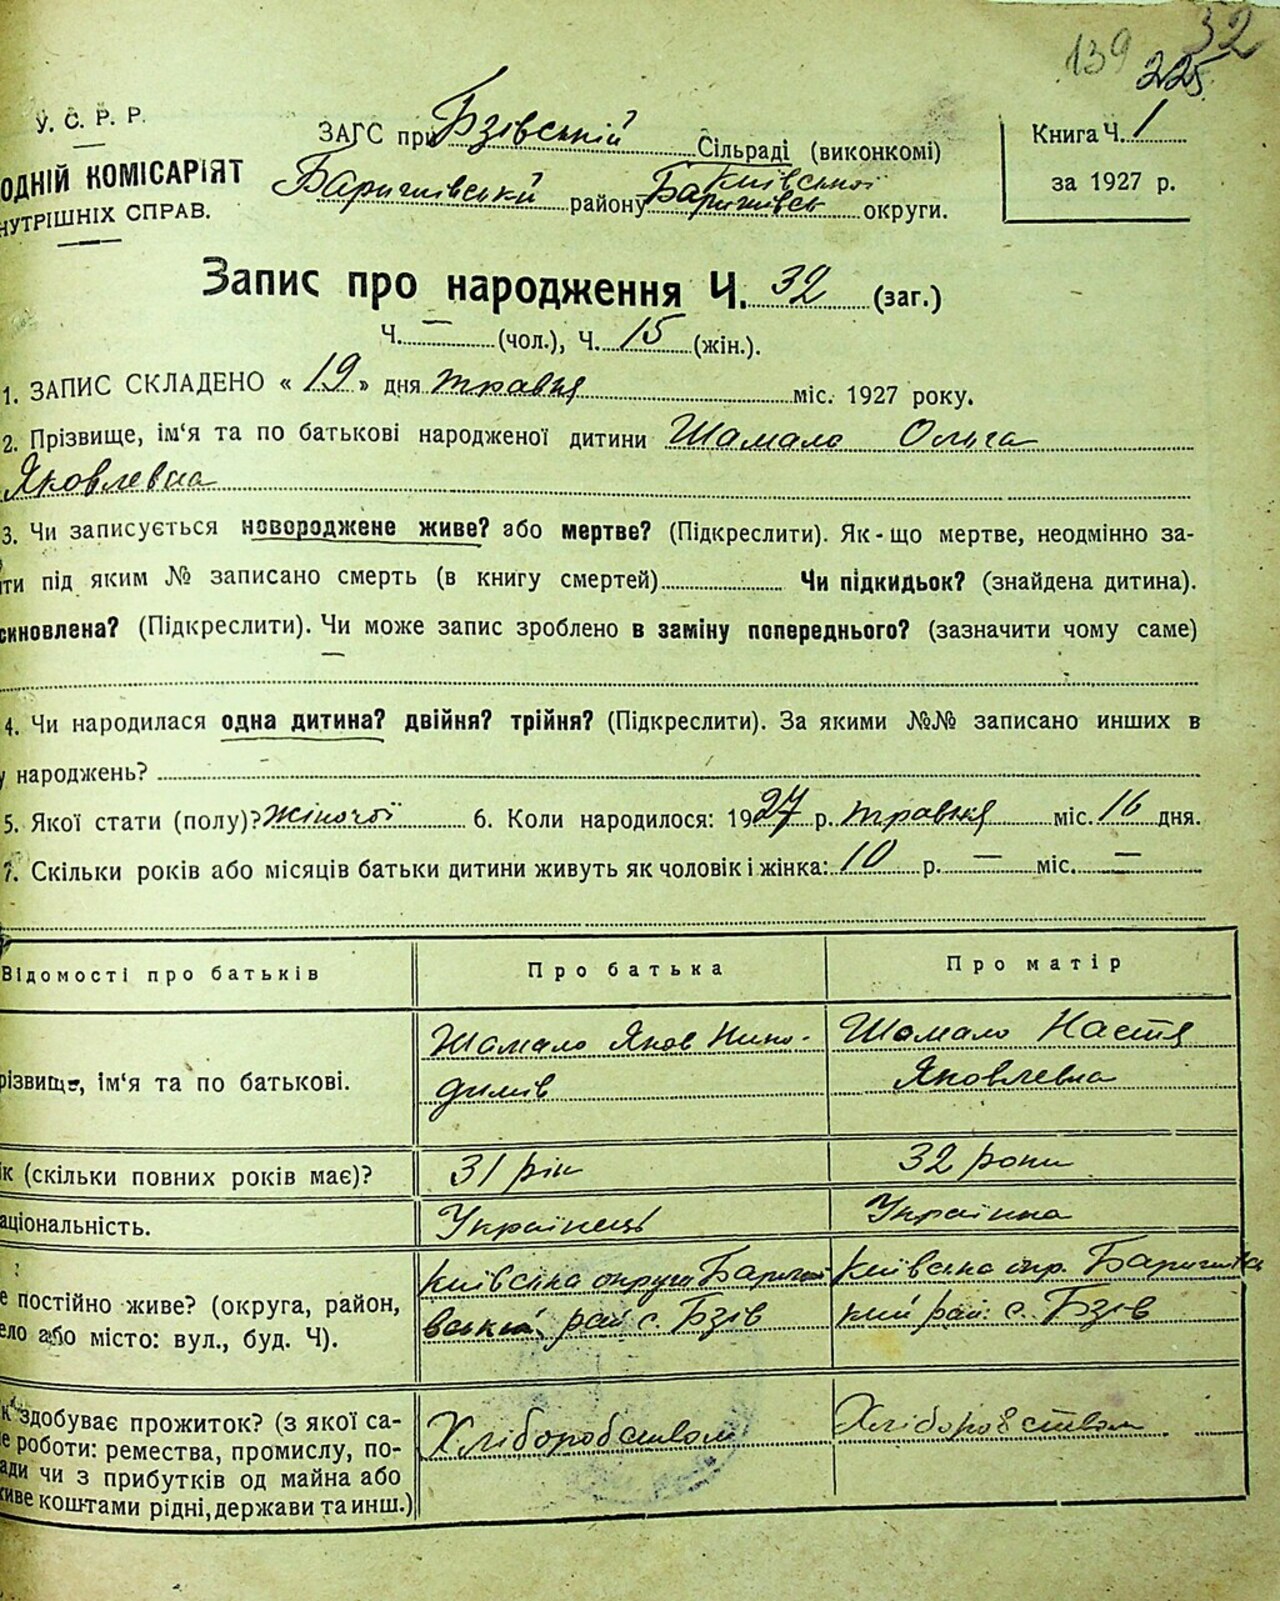 139 32
225
У. С. Р. Р.
ЗАГС при Бзівській Сільраді (виконкомі)
Книга Ч. 1
ОДНІЙ КОМІСАРІЯТ
Київської
Баришівський району Баришівськ округи.
за 1927 р.
НУТРІШНІХ СПРАВ.
Запис про народження Ч. 32 (заг.)
Ч. — (чол.), Ч. 15 (жін.).
1. ЗАПИС СКЛАДЕНО « 19 » дня травня міс. 1927 року.
2. Прізвище, ім'я та по батькові народженої дитини Шамало Ольга
Яковлевна
3. Чи записується новороджене живе? або мертве? (Підкреслити). Як-що мертве, неодмінно за-
ти під яким № записано смерть (в книгу смертей) Чи підкидьок? (знайдена дитина).
синовлена? (Підкреслити). Чи може запис зроблено в заміну попереднього? (зазначити чому саме)
—
4. Чи народилася одна дитина? двійня? трійня? (Підкреслити). За якими №№ записано инших в
у народжень?
5. Якої стати (полу)? жіночої 6. Коли народилося: 1927 р. травня міс. 16 дня.
7. Скільки років або місяців батьки дитини живуть як чоловік і жінка: 10 р. — міс. —
Відомості про батьків Про батька Про матір
різвище, ім'я та по батькові.
Шамало Яков Нико-
димів
Шамало Настя
Яковлевна
ік (скільки повних років має)? 31 рік 32 роки
аціональність. Українець Українка
е постійно живе? (округа, район,
ело або місто: вул., буд. Ч).
Київська округи Бариші
вський рай с. Бзів
Київська окр. Баришівсь
кий рай. с. Бзів
к здобуває прожиток? (з якої са-
е роботи: ремества, промислу, по-
ади чи з прибутків од майна або
живе коштами рідні, держави та инш.)
Хліборобством
Хліборобством